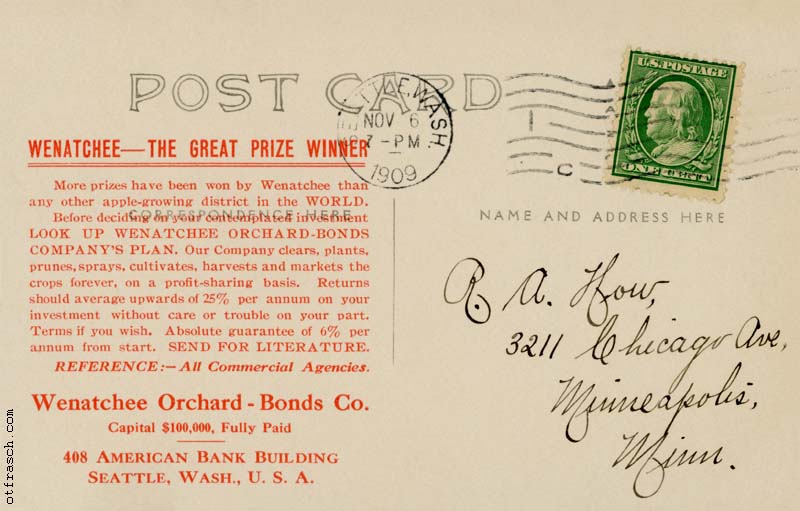 POST CARD
SEATTLE, WASH.
NOV 6
7 - PM
1909
1
C
U.S. POSTAGE
ONE CENT
WENATCHEE—THE GREAT PRIZE WINNER
More prizes have been won by Wenatchee than
any other apple-growing district in the WORLD.
Before deciding on your contemplated investment
LOOK UP WENATCHEE ORCHARD-BONDS
COMPANY'S PLAN. Our Company clears, plants,
prunes, sprays, cultivates, harvests and markets the
crops forever, on a profit-sharing basis. Returns
should average upwards of 25% per annum on your
investment without care or trouble on your part.
Terms if you wish. Absolute guarantee of 6% per
annum from start. SEND FOR LITERATURE.
REFERENCE:—All Commercial Agencies.
Wenatchee Orchard-Bonds Co.
Capital $100,000, Fully Paid
408 AMERICAN BANK BUILDING
SEATTLE, WASH., U. S. A.
CORRESPONDENCE HERE
NAME AND ADDRESS HERE
R. A. How,
3211 Chicago Ave,
Minneapolis,
Minn.
otfrasch.com